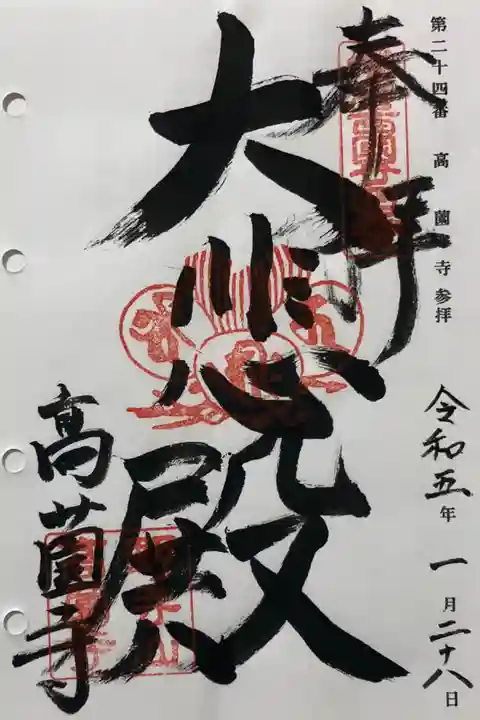 第二十四番 高薗寺参拝
令和五年一月二十八日
奉拝
大悲殿
高薗寺